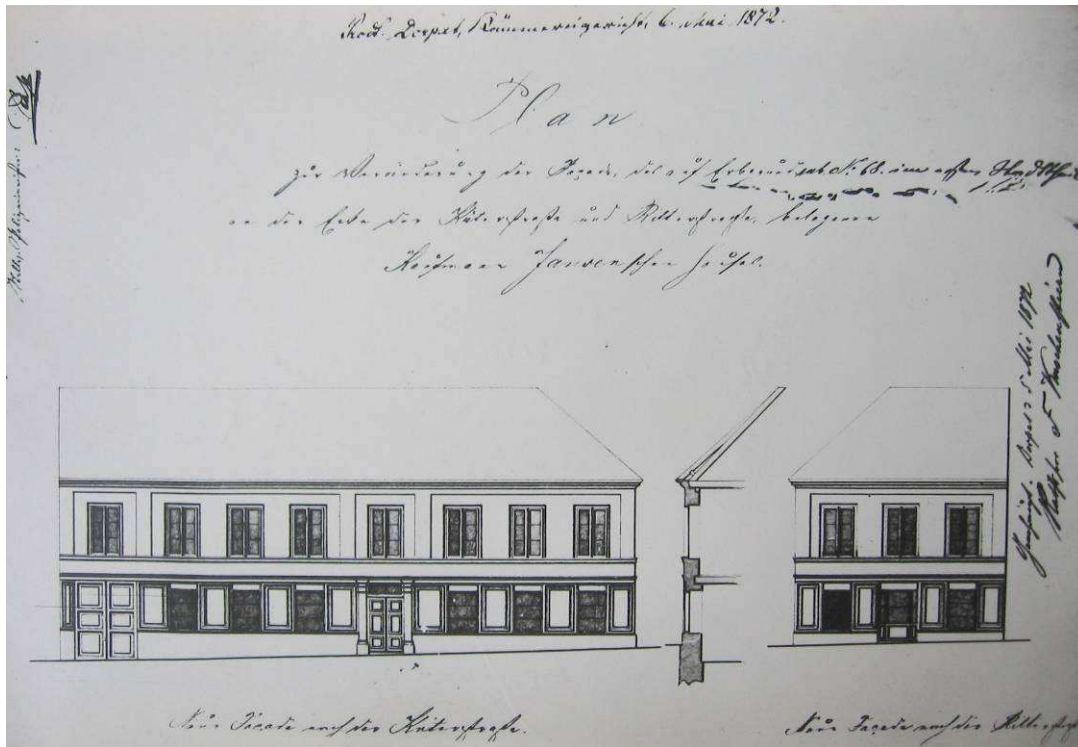 Dorpat, Kämmereigericht, 6. Mai 1872.
Plan
zur Veränderung der Façade, des auf Erbgrund sub № 68. im ersten Stadttheil
an der Ecke der Küterstraße und Ritterstraße, belegenen
Kaufmann Jansenschen Hauses.
Dorpat 5 Mai 1872
Neue Façade nach der Küterstraße.
Neue Façade nach der Ritterstraße